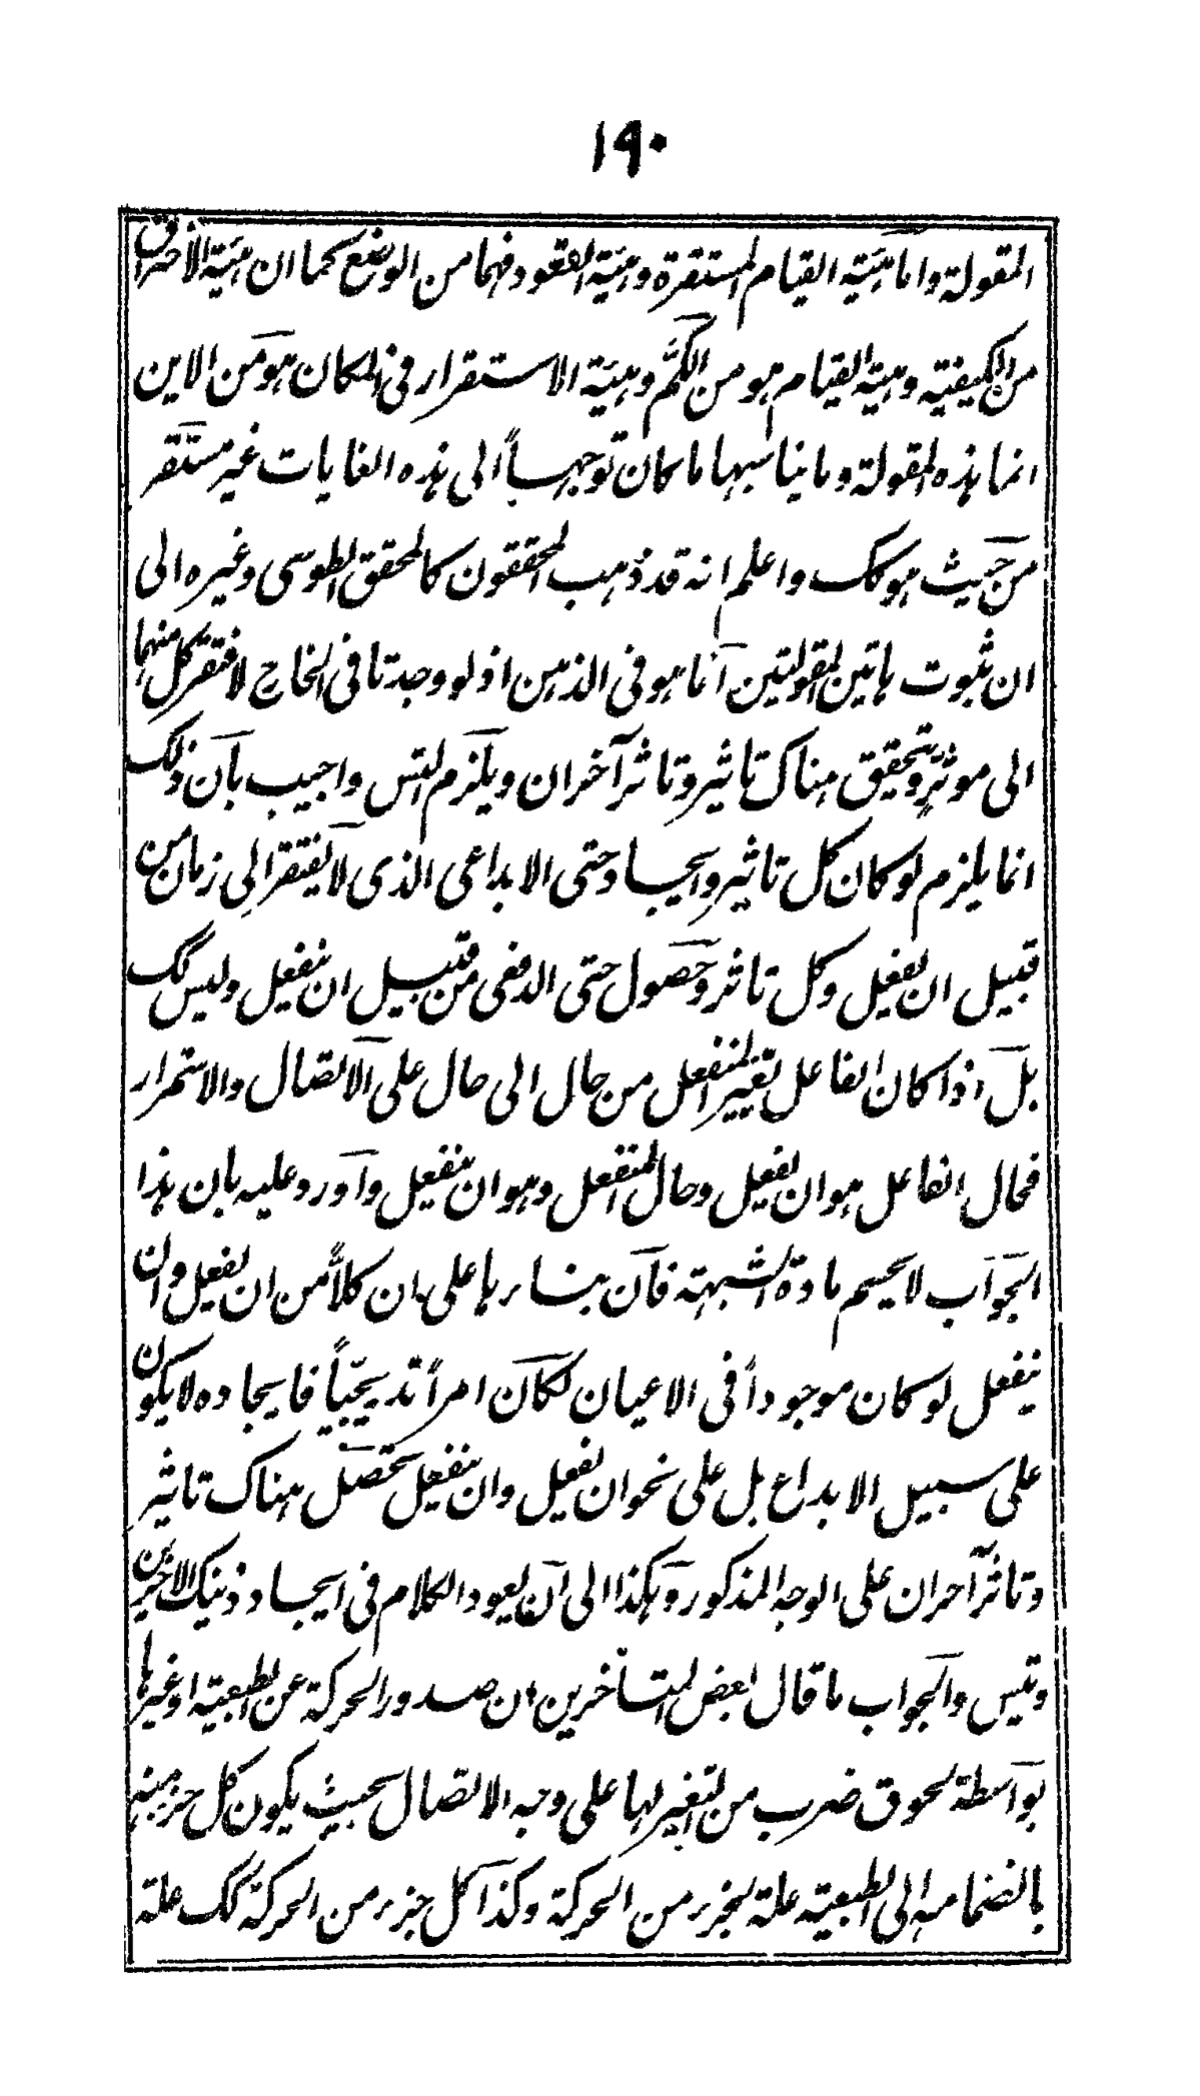 ١٩٠
المقولة واما هيئة القيام المستقرة وهيئة القعود فهما من الوضع كما ان هيئة الاحتراق
من الكيفية وهيئة القيام هو من الكم وهيئة الاستقرار فى المكان هو من الاين
انما هذه المقولة وما يناسبها ما كان توجها الى هذه الغايات غير مستقر
من حيث هو كك واعلم انه قد ذهب المحققون كالمحقق الطوسى وغيره الى
ان ثبوت هاتين المقولتين انما هو فى الذهن اذ لو وجدتا فى الخارج لافتقر كل منهما
الى موثر وتحقيق هناك تاثير وتاثر آخران ويلزم التس واجيب بان ذلك
انما يلزم لو كان كل تاثير وايجاد حتى الابداعى الذى لا يفتقر الى زمان من
قبيل ان يفعل وكل تاثر وحصول حتى الدفعى من قبيل ان ينفعل وليس كك
بل اذا كان الفاعل يغير المنفعل من حال الى حال على الاتصال والاستمرار
فحال الفاعل هو ان يفعل وحال المنفعل وهو ان ينفعل واورد عليه بان هذا
الجواب لا يحسم مادة الشبهة فان بناءها على ان كلاً من ان يفعل وان
ينفعل لو كان موجوداً فى الاعيان لكان امراً تدريجيّاً فايجاده لا يكون
على سبيل الابداع بل على نحو ان يفعل وان ينفعل تحصل هناك تاثير
وتاثر آخران على الوجه المذكور وهكذا الى ان يعود الكلام فى ايجاد ذينك الاخرين
وتس والجواب ما قال بعض المتأخرين ان صدور الحركة عن الطبيعة او غيرها
بواسطة لحوق ضرب من التغير لها على وجه الاتصال بحيث يكون كل جزء منه
بانضمامه الى الطبيعة علة لجزء من الحركة وكذا كل جزء من الحركة كك علة